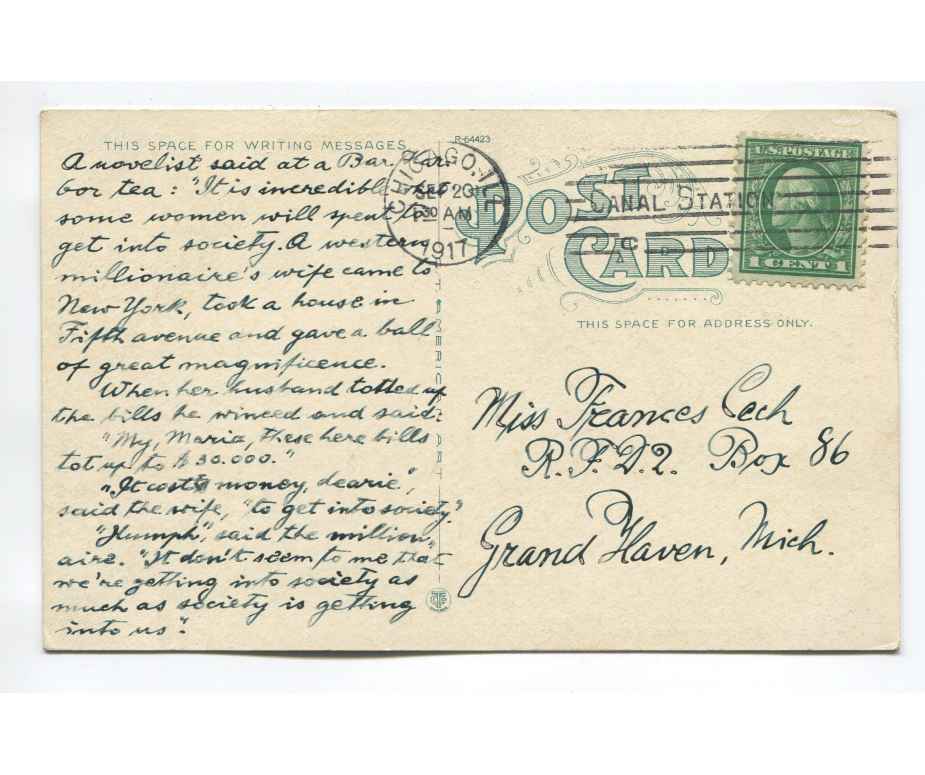 THIS SPACE FOR WRITING MESSAGES
R-64423
A novelist said at a Bar Har
bor tea: "It is incredible
some women will spent to
get into society. A western
millionaire's wife came to
New York, took a house in
Fifth avenue and gave a ball
of great magnificence.
When her husband totted up
the bills he winced and said:
"My, Maria, these here bills
tot up to $30.000."
"It costs money, dearie",
said the wife, "to get into society."
"Humph", said the million,
aire. "It don't seem to me that
we're getting into society as
much as society is getting
into us".
CHICAGO, ILL.
SEP 20
830 AM
1917
CANAL STATION
C
POST
CARD
U.S. POSTAGE
1 CENT 1
THIS SPACE FOR ADDRESS ONLY.
Miss Frances Cech
R.F.D.2. Box 86
Grand Haven, Mich.
AMERICAN ART